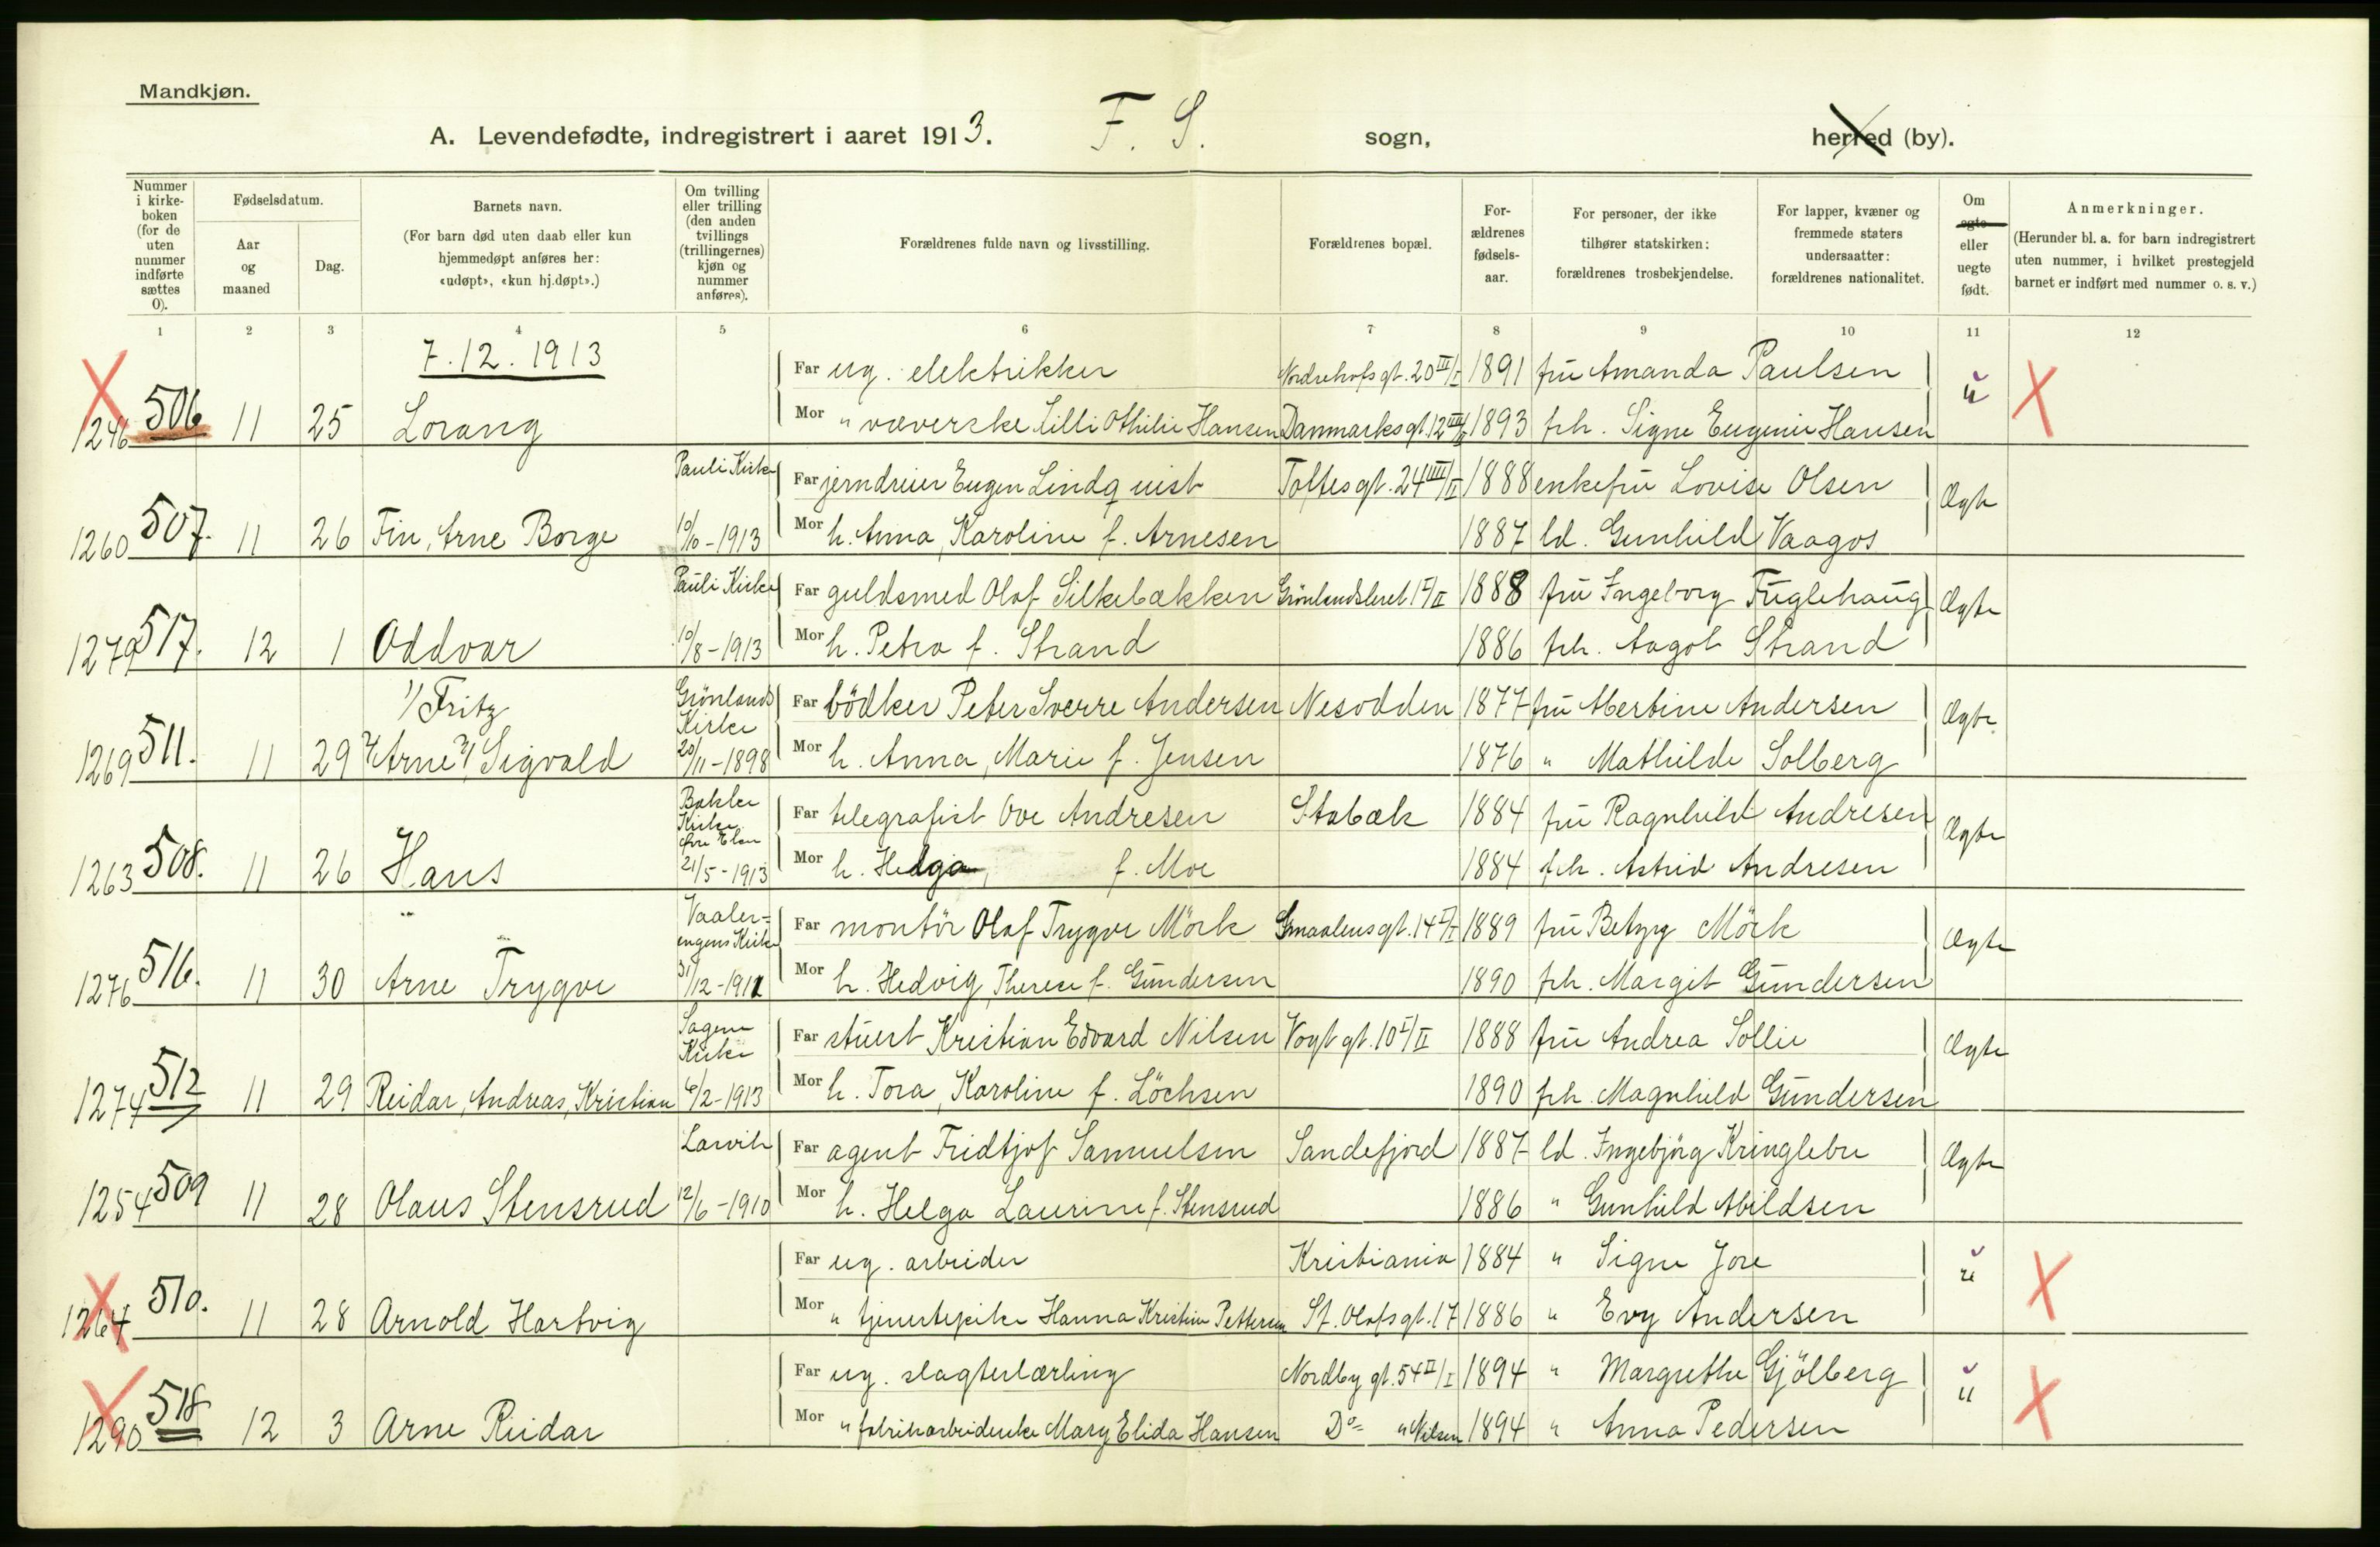 Mandkjøn.
A. Levendefødte, indregistrert i aaret 1913. F. S. sogn, herred (by).
Nummer i kirke-boken (for de uten nummer indførte sættes 0).
Fødselsdatum.
Aar og maaned
Dag.
Barnets navn.
(For barn død uten daab eller kun hjemmedøpt anføres her: «udøpt», «kun hj.døpt».)
Om tvilling eller trilling (den anden tvillings (trillingernes) kjøn og nummer anføres).
Forældrenes fulde navn og livsstilling.
Forældrenes bopæl.
For-ældrenes fødsels-aar.
For personer, der ikke tilhører statskirken: forældrenes trosbekjendelse.
For lapper, kvæner og fremmede staters undersaatter: forældrenes nationalitet.
Om egte eller uegte født.
Anmerkninger.
(Herunder bl. a. for barn indregistrert uten nummer, i hvilket prestegjeld barnet er indført med nummer o. s. v.)
1 2 3 4 5 6 7 8 9 10 11 12
7.12.1913
Far ug. elektrikker Nordrehofsgt. 20 III/I 1891 fru Amanda Paulsen
1246 506 11 25 Lorang Mor " væverske Lilli Othilie Hansen Danmarksgt. 12 1893 frk. Signe Eugenie Hansen u
Pauli Kirke Far jerndreier Eugen Lindquist Toftesgt. 24 IIII/II 1888 enkefru Lovise Olsen
1260 507. 11 26 Fin, Arne Borge 10/10-1913 Mor h. Anna, Karoline f. Arnesen 1887 ld. Gunhild Vaagos Ægte
Pauli Kirke Far guldsmed Olaf Silkebækken Grönlandsleret 17/II 1888 fru Ingeborg Fuglehaug
1279 517. 12 1 Oddvar 10/8-1913 Mor h. Petra f. Strand 1886 frk. Aagot Strand Ægte
1/ Fritz Grönlands Kirke Far bödker Peter Sverre Andersen Nesodden 1877 fru Albertine Andersen
1269 511. 11 29 2/ Arne 3/ Sigvald 20/11-1898 Mor h. Anna, Marie f. Jensen 1876 " Mathilde Solberg Ægte
Bakke Kirke Far telegrafist Ove Andresen Stabæk 1884 fru Ragnhild Andresen
1263 508. 11 26 Hans 21/5-1913 Mor h. Helga, f. Moe 1884 frk. Astrid Andresen Ægte
Vaaler-engens Kirke Far montör Olaf Trygve Mörk Smaalensgt. 14 1889 fru Betzy Mörk
1276 516. 11 30 Arne Trygve 31/12-1911 Mor h. Hedvig, Therese f. Gundersen 1890 frk. Margit Gundersen Ægte
Sagene Kirke Far stuert Kristian Edvard Nilsen Vogtgt. 10 I/II 1888 fru Andrea Sollie
1274 512 11 29 Reidar, Andreas, Kristian 6/2-1913 Mor h. Tora, Karoline f. Löchsen 1890 frk. Magnhild Gundersen Ægte
Larvik Far agent Fridtjof Samuelsen Sandefjord 1887 ld. Ingebjörg Kringlebu
1254 509 11 28 Olaus Stensrud 12/6-1910 Mor h. Helga Laurine f. Stensrud 1886 " Gunhild Abildsen Ægte
Far ug. arbeider Kristiania 1884 " Signe Jore
1264 510. 11 28 Arnold Hartvig Mor " tjenestepike Hanna Kristine Pettersen St. Olafsgt. 17 1886 " Evy Andersen u
Far ug. slagterlærling Nordbygt. 54 II/I 1894 " Margrethe Gjölberg
1290 518 12 3 Arne Reidar Mor " fabrikarbeiderske Mary Elida Hansen Do " Nilsen 1894 " Anna Pedersen u